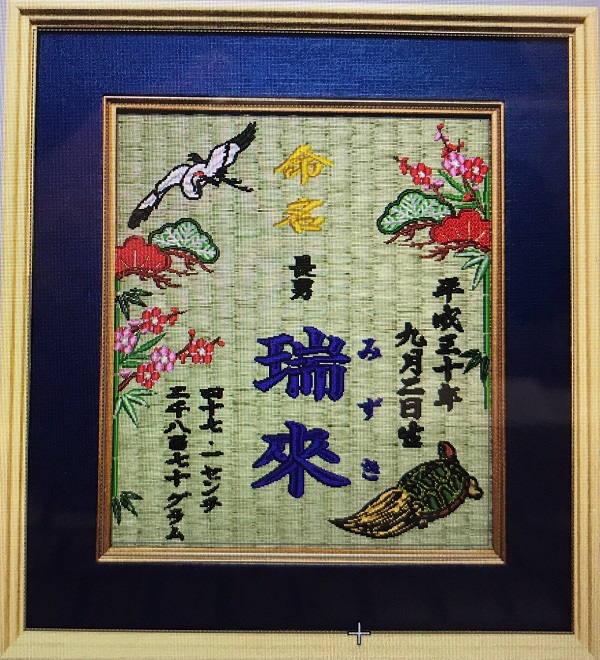 平成三十年
九月二日生
みずき
命名
長男
瑞來
四十七・一センチ
三千八百七十グラム